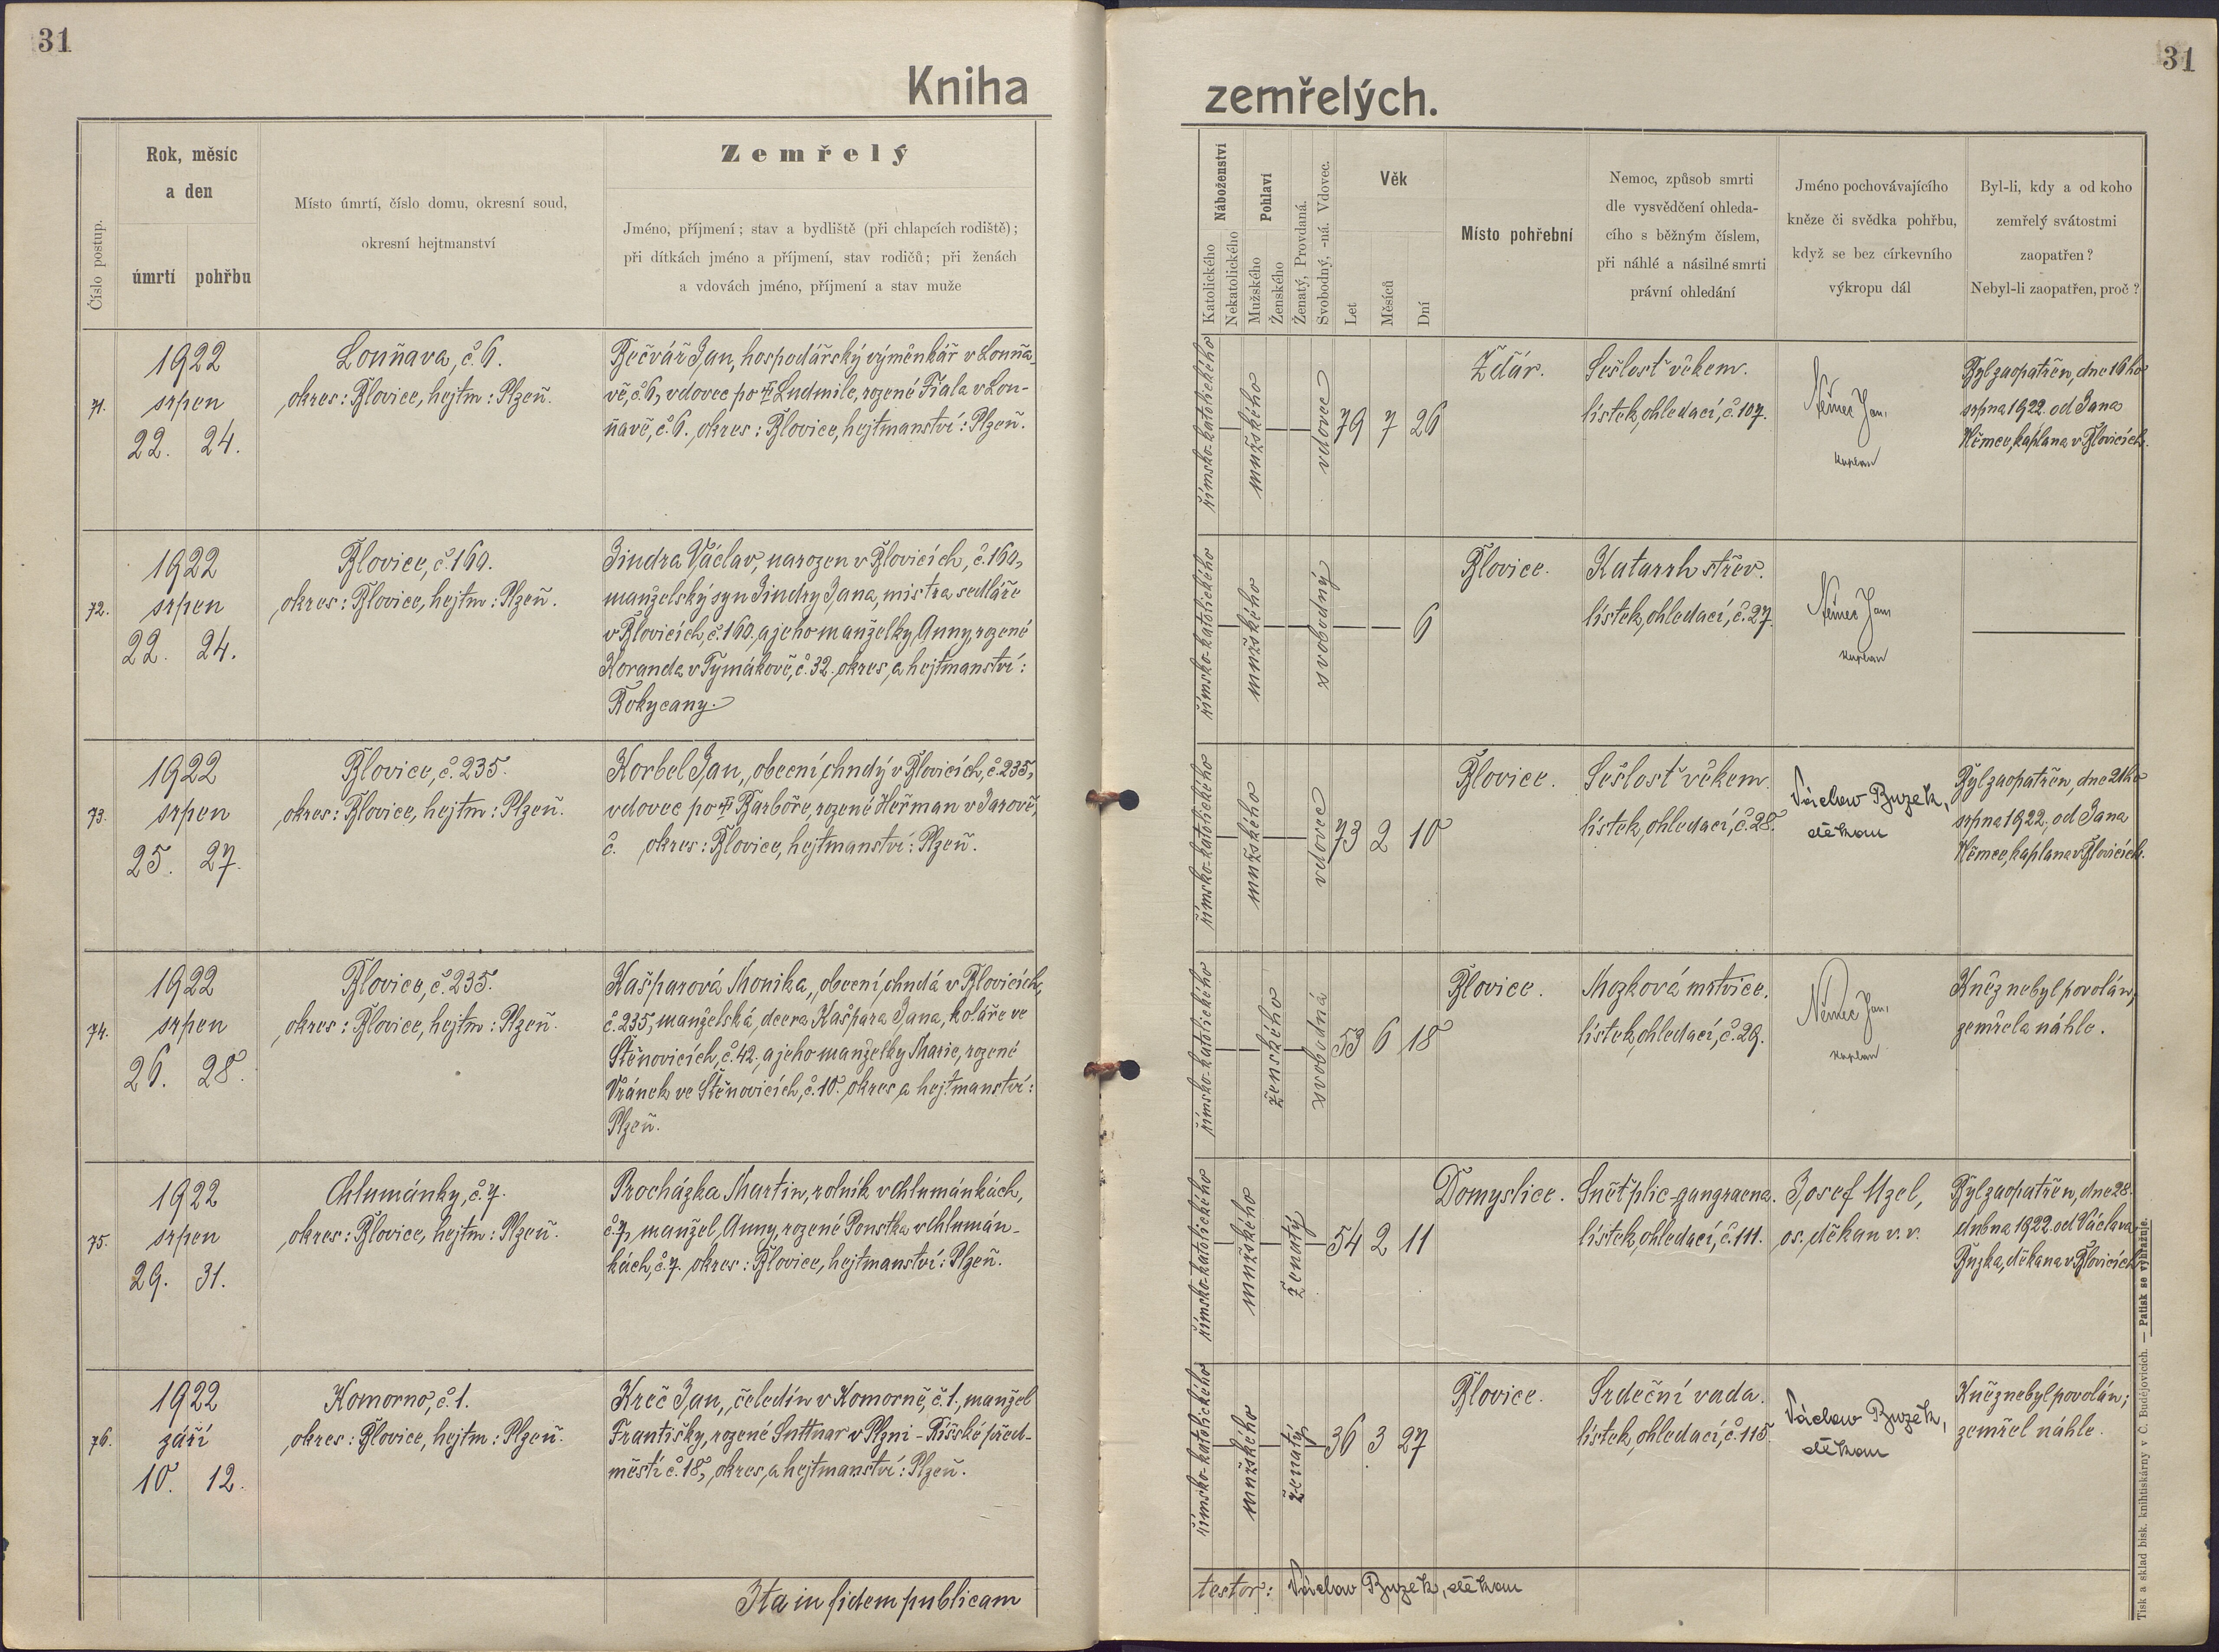 31
31
Kniha
zemřelých.
Číslo postup.
Rok, měsíc
a den
úmrtí
pohřbu
Místo úmrtí, číslo domu, okresní soud,
okresní hejtmanství
Zemřelý
Jméno, příjmení; stav a bydliště (při chlapcích rodiště);
při dítkách jméno a příjmení, stav rodičů; při ženách
a vdovách jméno, příjmení a stav muže
Náboženství
Katolického
Nekatolického
Pohlaví
Mužského
Ženského
Ženatý, Provdaná.
Svobodný, -ná. Vdovec.
Věk
Let
Měsíců
Dní
Místo pohřební
Nemoc, způsob smrti
dle vysvědčení ohleda-
cího s běžným číslem,
při náhlé a násilné smrti
právní ohledání
Jméno pochovávajícího
kněze či svědka pohřbu,
když se bez církevního
výkropu dál
Byl-li, kdy a od koho
zemřelý svátostmi
zaopatřen?
Nebyl-li zaopatřen, proč?
71.
1922
srpen
22. 24.
Louňava, č. 6.
okres: Blovice, hejtm: Plzeň.
Bečvář Jan, hospodářský výměnkář v Louňa-
vě, č. 6, vdovec po Ludmile, rozené Fiala v Lou-
ňavě, č. 6. okres: Blovice, hejtmanství: Plzeň.
římsko-katolického
mužského
vdovec
79 7 26
Ždár.
Sešlost věkem.
lístek ohledací, č. 107.
Němec Jan,
kaplan
Byl zaopatřen, dne 16ho
srpna 1922. od Jana
Němce, kaplana v Blovicích.
72.
1922
srpen
22. 24.
Blovice, č. 160.
okres: Blovice, hejtm: Plzeň.
Jindra Václav, narozen v Blovicích, č. 160,
manželský syn Jindry Jana, mistra sedláře
v Blovicích, č. 160, a jeho manželky Anny, rozené
Koranda v Tymákově, č. 32. okres a hejtmanství:
Rokycany.
římsko-katolického
mužského
svobodný
6
Blovice.
Katarrh střev.
lístek ohledací, č. 27.
Němec Jan
kaplan
73.
1922
srpen
25. 27.
Blovice, č. 235.
okres: Blovice, hejtm: Plzeň.
Korbel Jan, obecní chudý v Blovicích, č. 235,
vdovec po Barboře, rozené Heřman v Jarově,
č. okres: Blovice, hejtmanství: Plzeň.
římsko-katolického
mužského
vdovec
73 2 10
Blovice.
Sešlost věkem.
lístek ohledací, č. 28.
Václav Buzek,
děkan
Byl zaopatřen, dne 21ho
srpna 1922. od Jana
Němce, kaplana v Blovicích.
74.
1922
srpen
26. 28.
Blovice, č. 235.
okres: Blovice, hejtm: Plzeň.
Kašparová Monika, obecní chudá v Blovicích,
č. 235, manželská dcera Kašpara Jana, koláře ve
Štěnovicích, č. 42. a jeho manželky Marie, rozené
Vránek ve Štěnovicích, č. 10. okres a hejtmanství:
Plzeň.
římsko-katolického
ženského
svobodná
53 6 18
Blovice.
Mozková mrtvice.
lístek ohledací, č. 29.
Němec Jan,
kaplan
Kněz nebyl povolán,
zemřela náhle.
75.
1922
srpen
29. 31.
Chlumánky, č. 7.
okres: Blovice, hejtm: Plzeň.
Procházka Martin, rolník v Chlumánkách,
č. 7, manžel Anny, rozené Pouska v Chlumán-
kách, č. 7. okres: Blovice, hejtmanství: Plzeň.
římsko-katolického
mužského
ženatý
54 2 11
Domyslice.
Snět plic-gangraena.
lístek ohledací, č. 111.
Josef Uzel,
os. děkan v. v.
Byl zaopatřen, dne 28.
dubna 1922. od Václava
Buzka, děkana v Blovicích
76.
1922
září
10. 12.
Komorno, č. 1.
okres: Blovice, hejtm: Plzeň.
Kreč Jan, čeledín v Komorně, č. 1, manžel
Františky, rozené Suttnar v Plzni - Říšské před-
městí č. 18, okres a hejtmanství: Plzeň.
římsko-katolického
mužského
ženatý
36 3 27
Blovice.
Srdeční vada.
lístek ohledací, č. 115.
Václav Buzek,
děkan
Kněz nebyl povolán;
zemřel náhle.
Ita in fidem publicam
testor: Václav Buzek, děkan
Tisk a sklad bisk. knihtiskárny v Č. Budějovicích. — Patisk se vyhražuje.